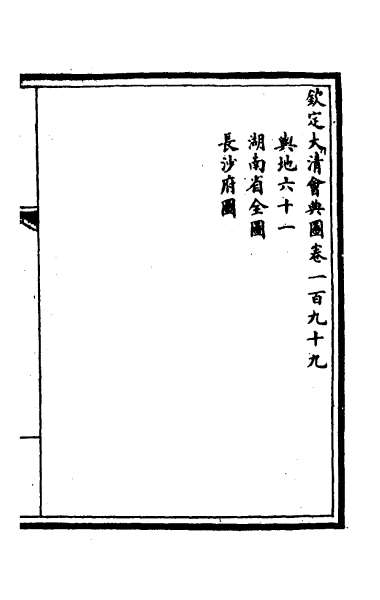 欽定大清會典圖卷一百九十九
輿地六十一
湖南省全圖
長沙府圖